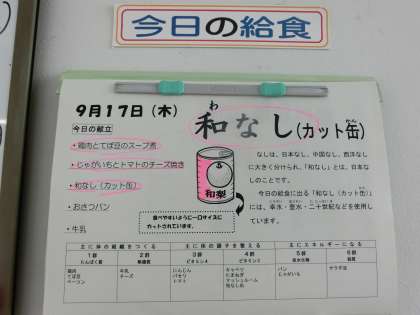 今日の給食
9月17日(木)
今日の献立
・鶏肉とてぼ豆のスープ煮
・じゃがいもとトマトのチーズ焼き
・和なし(カット缶)
・おさつパン
・牛乳
わ
和なし(カット缶)
かん
なしは、日本なし、中国なし、西洋なし
に大きく分けられ、「和なし」とは、日本な
しのことです。
今日の給食に出る「和なし(カット缶)」
には、幸水・豊水・二十世紀などを使用し
ています。
和梨
食べやすいように一口サイズに
カットされています。
主に体の組織をつくる
主に体の調子を整える
主にエネルギーになる
1群 2群 3群 4群 5群 6群
たんぱく質 無機質 ビタミンA ビタミンC 炭水化物 脂質
鶏肉 牛乳 にんじん キャベツ パン サラダ油
てぼ豆 チーズ パセリ たまねぎ じゃがいも
ベーコン トマト マッシュルーム
和なし缶